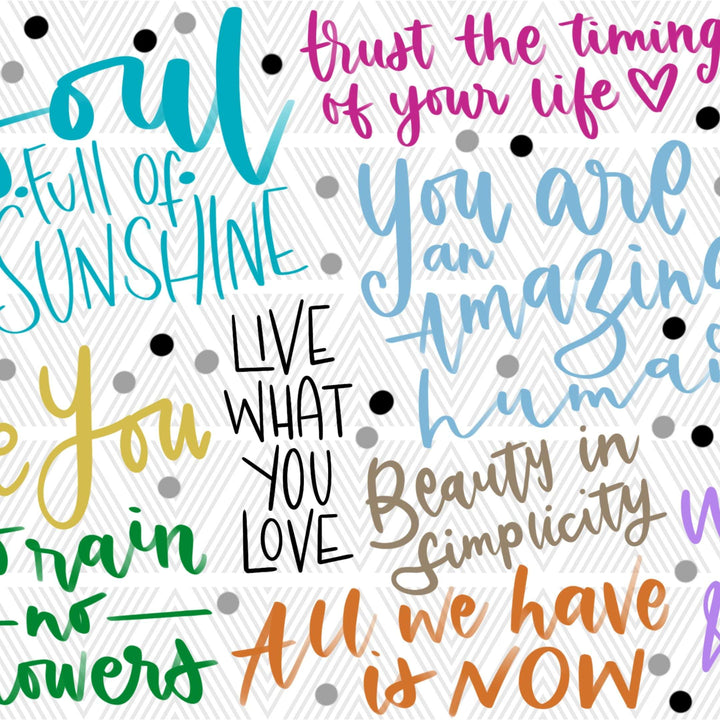 Soul
Full of
SUNSHINE
trust the timing
of your life
You are
an
Amazing
human
LIVE
WHAT
YOU
LOVE
e You
rain
no
lowers
Beauty in
simplicity
All we have
is NOW